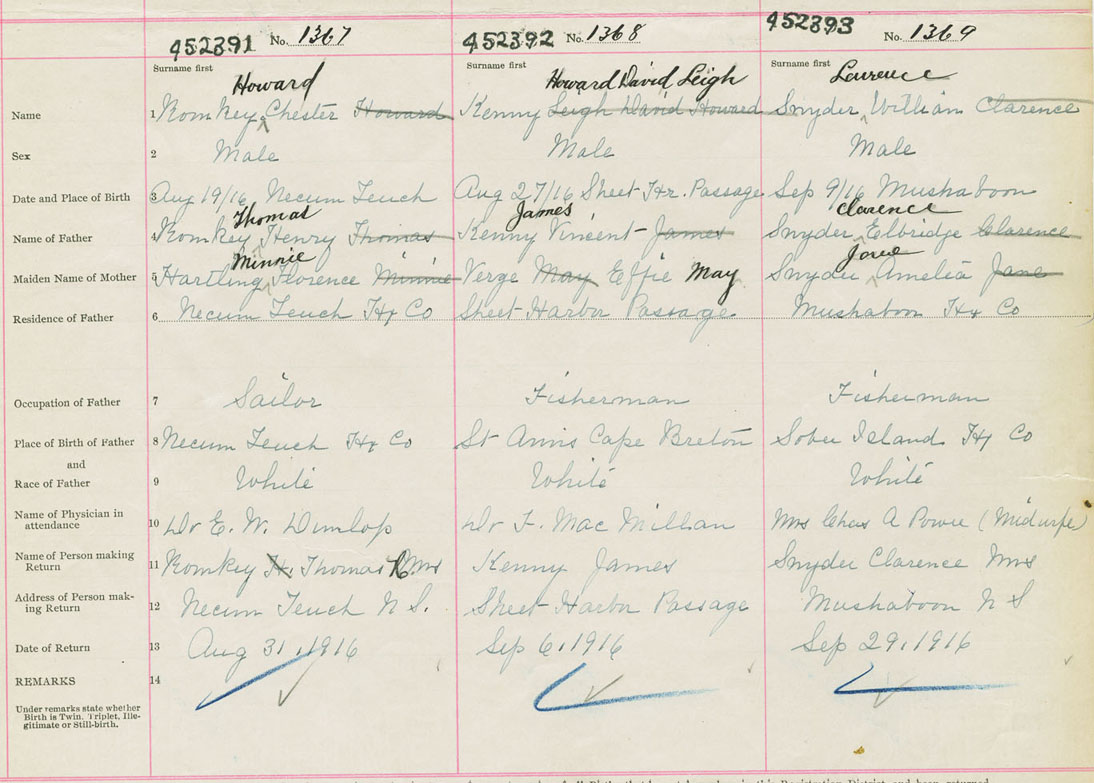 452391 No. 1367 452392 No. 1368 452393 No. 1369
Surname first Surname first Surname first
Howard Howard David Leigh Lawrence
Name 1 Romkey Chester Howard Kenny Leigh David Howard Snyder William Clarence
Sex 2 Male Male Male
Date and Place of Birth 3 Aug 19/16 Necum Teuch Aug 27/16 Sheet Hr. Passage Sep 9/16 Mushaboon
Thomas James Clarence
Name of Father 4 Romkey Henry Thomas Kenny Vincent James Snyder Elbridge Clarence
Minnie Jane
Maiden Name of Mother 5 Hartling Florence Minnie Verge May Effie May Snyder Amelia Jane
Residence of Father 6 Necum Teuch Hx Co Sheet Harbor Passage Mushaboon Hx Co
Occupation of Father 7 Sailor Fisherman Fisherman
Place of Birth of Father 8 Necum Teuch Hx Co St Anns Cape Breton Sober Island Hx Co
and
Race of Father 9 White White White
Name of Physician in
attendance 10 Dr E. W. Dunlop Dr F. Mac Millan Mrs Chas A Power (Midwife)
Name of Person making
Return 11 Romkey H. Thomas R Mrs Kenny James Snyder Clarence Mrs
Address of Person mak-
ing Return 12 Necum Teuch N S. Sheet Harbor Passage Mushaboon N S
Date of Return 13 Aug 31, 1916 Sep 6, 1916 Sep 29, 1916
REMARKS 14
Under remarks state whether
Birth is Twin. Triplet, Ille-
gitimate or Still-birth.